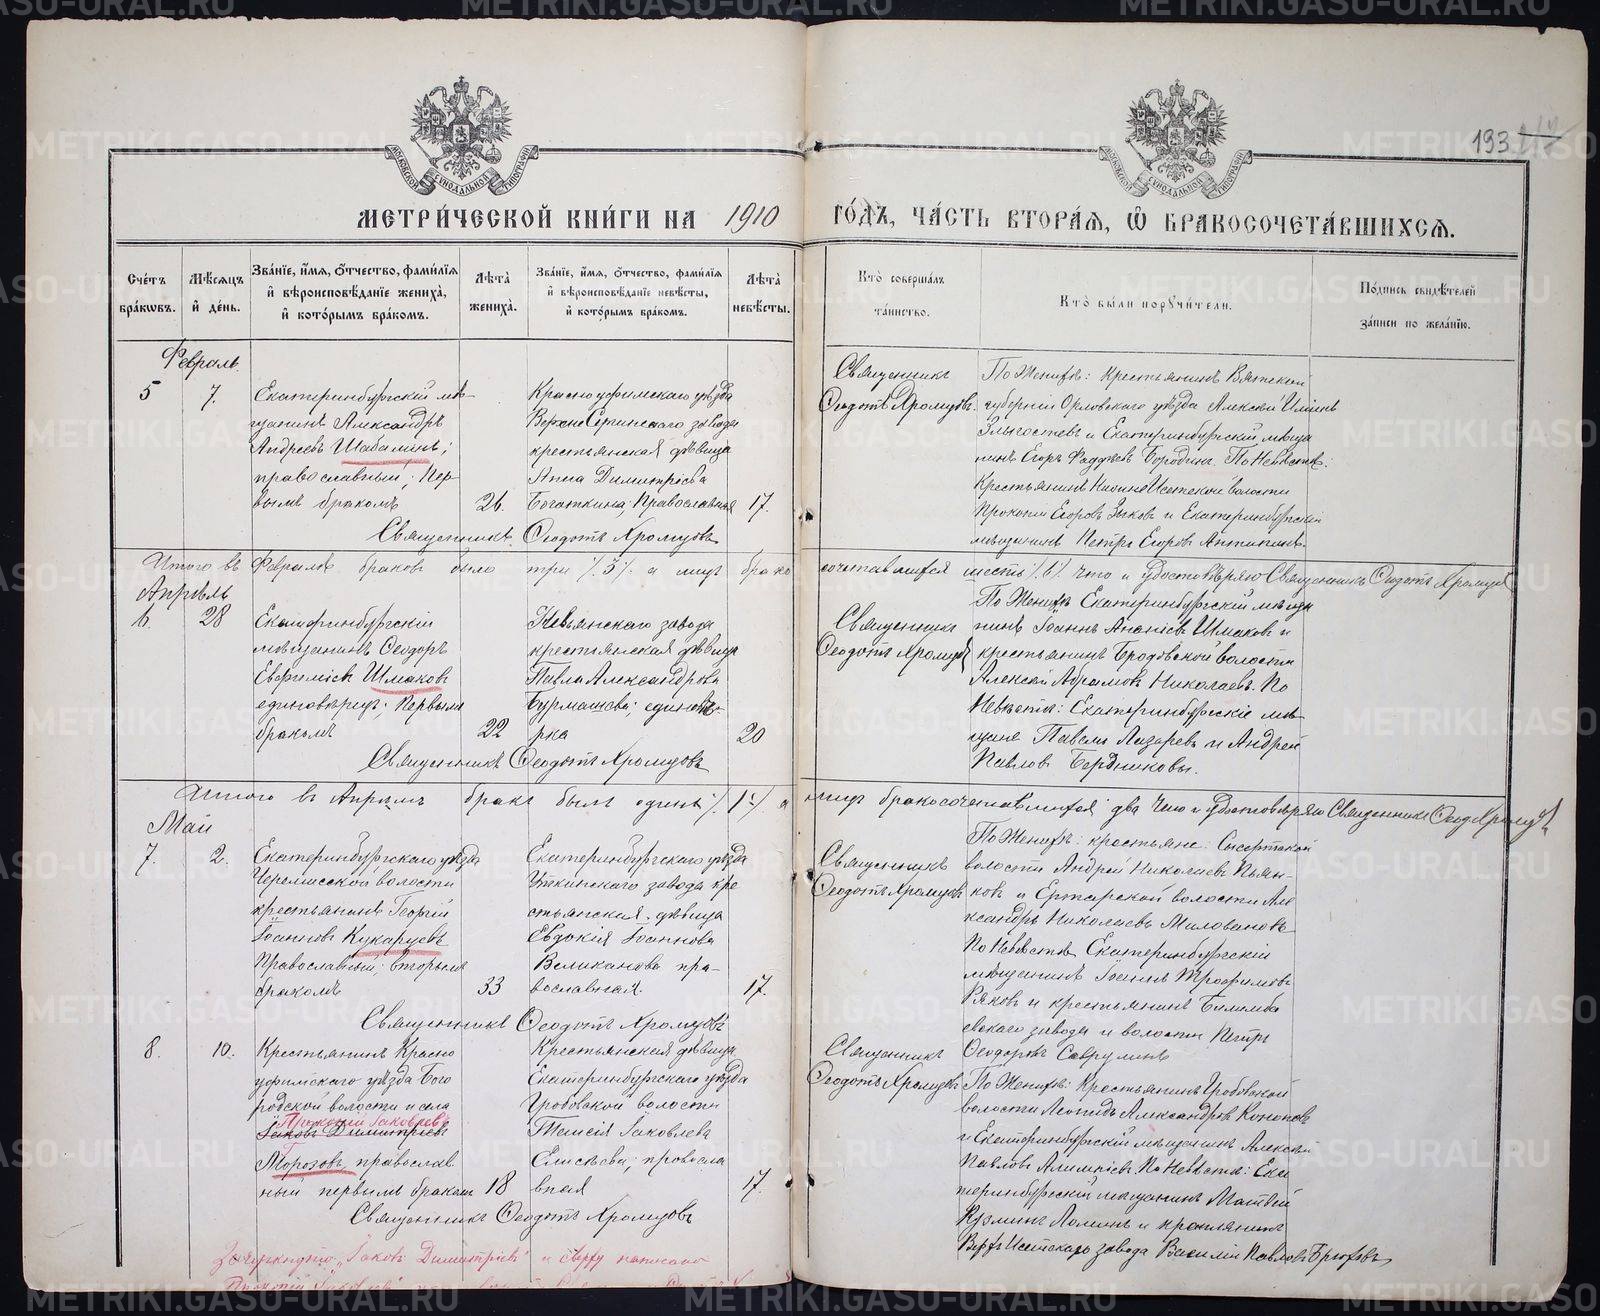 193
МЕТРИ́ЧЕСКОЙ КНИ́ГИ НА 1910 ГО́ДЪ, ЧА́СТЬ ВТОРА́Я, Ѡ БРАКОСОЧЕТА́ВШИХСЯ.
Сче́тъ бра́кѡвъ.
Мѣ́сяцъ и҆ де́нь.
Зва́нїе, и҆́мя, ѻ҆́тчество, фами́лїя и҆ вѣроисповѣ́данїе жениха̀, и҆ кото́рымъ бра́комъ.
Лѣ́та жениха̀.
Зва́нїе, и҆́мя, ѻ҆́тчество, фами́лїя и҆ вѣроисповѣ́данїе невѣ́сты, и҆ кото́рымъ бра́комъ.
Лѣ́та невѣ́сты.
Кто̀ соверша́лъ та́инство.
Кто̀ бы́ли порꙋчи́тели.
По́дпись свидѣ́телей за́писи по жела́нїю.
Февраль
5
7.
Екатеринбургскій мѣ-
щанинъ Александръ
Андреевъ Шабалинъ;
православный; пер-
вымъ бракомъ
26.
Красноуфимскаго уѣзда
Верхне Сергинскаго завода
крестьянская дѣвица
Анна Димитріева
Богаткина, Православная
17.
Священникъ Ѳеодотъ Хромцовъ
Священникъ
Ѳеодотъ Хромцовъ.
По Женихѣ: крестьянинъ Вятской
губерніи Орловскаго уѣзда Алексѣй Ильинъ
и Екатеринбургскій мѣща
нинъ Егоръ Фаддѣевъ Бородинъ. По Невѣстѣ:
Крестьянинъ Нижне Исетской волости
Прокопій Егоровъ Зыковъ и Екатеринбургскій
мѣщанинъ Петръ Егоровъ Антипинъ.
Итого въ Февралѣ браковъ было три /.3/. а лицъ брако сочетавшихся шесть /.6/. Что и удостовѣряю Священникъ Ѳеодотъ Хромцовъ
Апрѣль
6.
28
Екатеринбургскій
мѣщанинъ Ѳеодоръ
Евфиміевъ Шмаковъ
единовѣрецъ; Первымъ
бракомъ
22
Невьянскаго завода
крестьянская дѣвица
Павла Александрова
Бурмашева; единовѣ-
рка
20
Священникъ Ѳеодотъ Хромцовъ
Священникъ
Ѳеодотъ Хромцовъ
По Женихѣ Екатеринбургскій мѣща
нинъ Іоаннъ Ананіевъ Шмаковъ и
крестьянинъ Бродовской волости
Алексѣй Абрамовъ Николаевъ. По
Невѣстѣ: Екатеринбургскіе мѣ-
щане Павелъ Лазаревъ и Андрей
Павловъ Бердниковы.
Итого въ Апрѣлѣ бракъ былъ одинъ /.1/. а лицъ бракосочетавшихся два Что и удостовѣряю Священникъ Ѳеод Хромцовъ
Май
7.
2.
Екатеринбургскаго уѣзда
Черемисской волости
крестьянинъ Георгій
Іоанновъ Кукарцевъ
Православный; вторымъ
бракомъ
33
Екатеринбургскаго уѣзда
Уткинскаго завода кре
стьянская дѣвица
Евдокія Іоаннова
Великанова пра-
вославная.
17.
Священникъ Ѳеодотъ Хромцовъ
Священникъ
Ѳеодотъ Хромцовъ
По Женихѣ: крестьяне: Сысертской
волости Андрей Николаевъ Пьян-
ковъ и Ертарской волости Але
ксандръ Николаевъ Миловановъ
По Невѣстѣ Екатеринбургскій
мѣщанинъ Іоаннъ Трофимовъ
и крестьянинъ Билимба
евскаго завода и волости Петръ
Ѳеодоровъ
8.
10.
Крестьянинъ Красно
уфимскаго уѣзда Бого
родской волости и села
Прокопій Іаковлевъ
Іаковъ Димитріевъ
Морозовъ, православ
ный первымъ бракомъ
18
Крестьянская дѣвица
Екатеринбургскаго уѣзда
Гробовской волости
Таисія Іаковлева
Елисѣева; правосла
вная
17.
Священникъ Ѳеодотъ Хромцовъ
Священникъ
Ѳеодотъ Хромцовъ
По Женихѣ: Крестьянинъ Гробовской
волости Леонидъ Александровъ Кононовъ
и Екатеринбургскій мѣщанинъ Алексѣй
Павловъ По Невѣстѣ: Ека
теринбургскій мѣщанинъ Матвѣй
Кузминъ и крестьянинъ
Верхъ Исетскаго завода Василій Павловъ Брюховъ
Зачеркнуто „Іаковъ Димитріевъ" и сверху написано